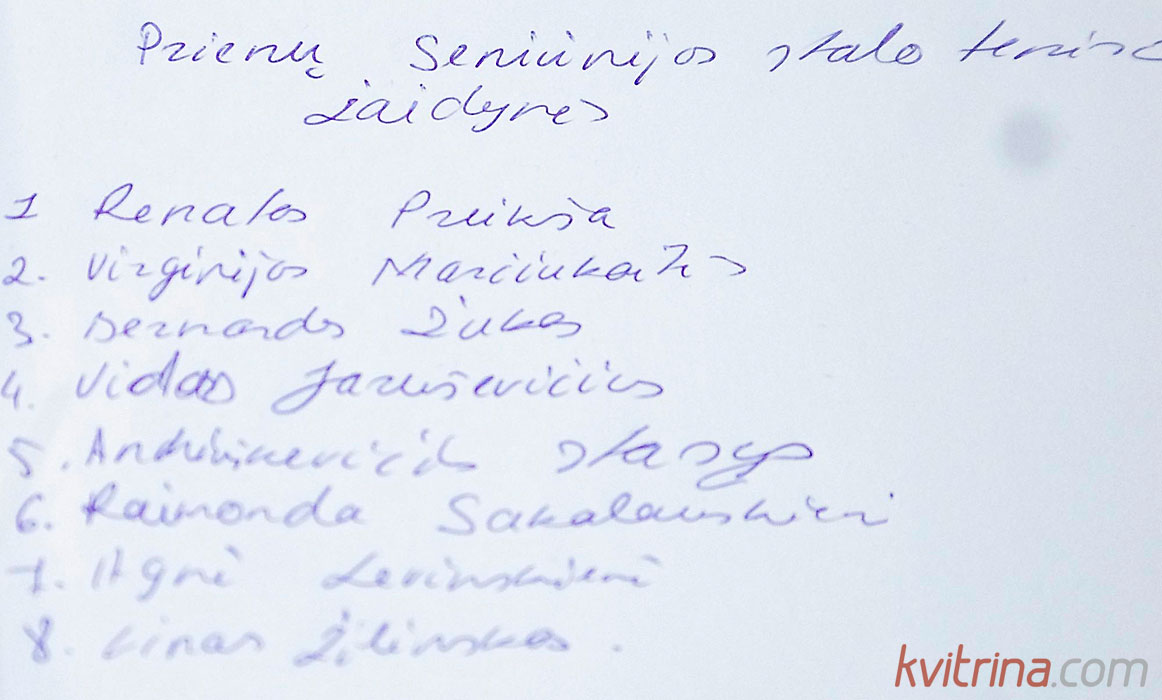 Prienų Seniūnijos stalo teniso
žaidynes
1 Renatas Preikša
2. Virginijos Marčiukaitis
3. Bernardas Žukas
4. Vidas Jaruševičius
5. stasys
6. Raimonda Sakalauskienė
7. Agnė Levinskienė
8. Linas Žilinskas.
kvitrina.com